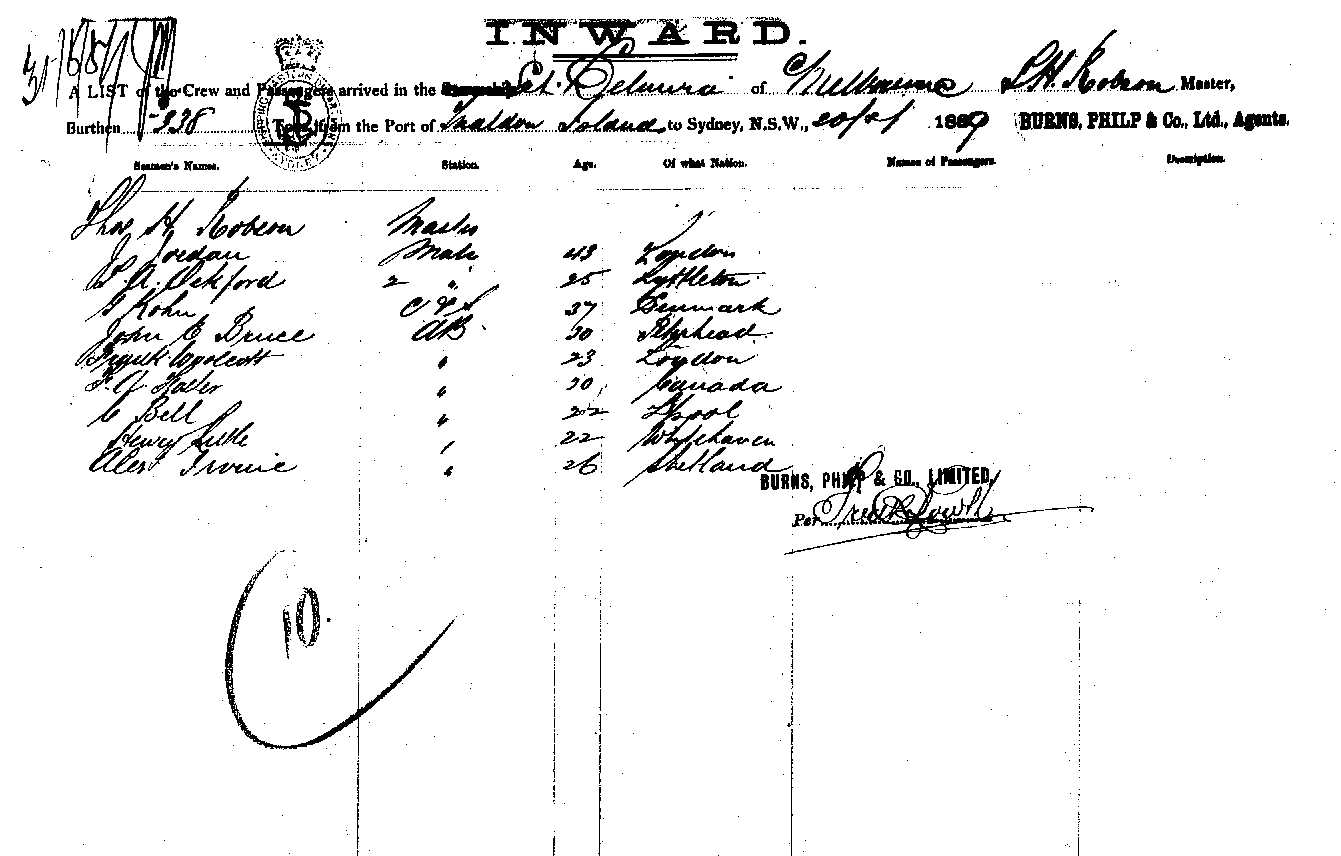 INWARD.
A LIST of the Crew and Passengers arrived in the of Melbourne T.H. Robson Master,
Burthen 338 Tons from the Port of Maldon Island to Sydney, N.S.W., 1889 BURNS, PHILP & Co., Ltd., Agents.
Seamen's Names. Station. Age. Of what Nation. Names of Passengers. Description.
Thos H. Robson Master
J Jordan Mate 43 London
A. Ockford 2 " 25 Lyttleton
G Kohn C & S 37 Denmark
John C Bruce AB. 30 Ptrhead
Frank Woolcott " 23 London
" 30 Canada
C Bell " 22 Lpool
Henry Little " 22 Whitehaven
Alexr Irvine " 26 Shetland
BURNS, PHILP & CO., LIMITED,
Per
10.